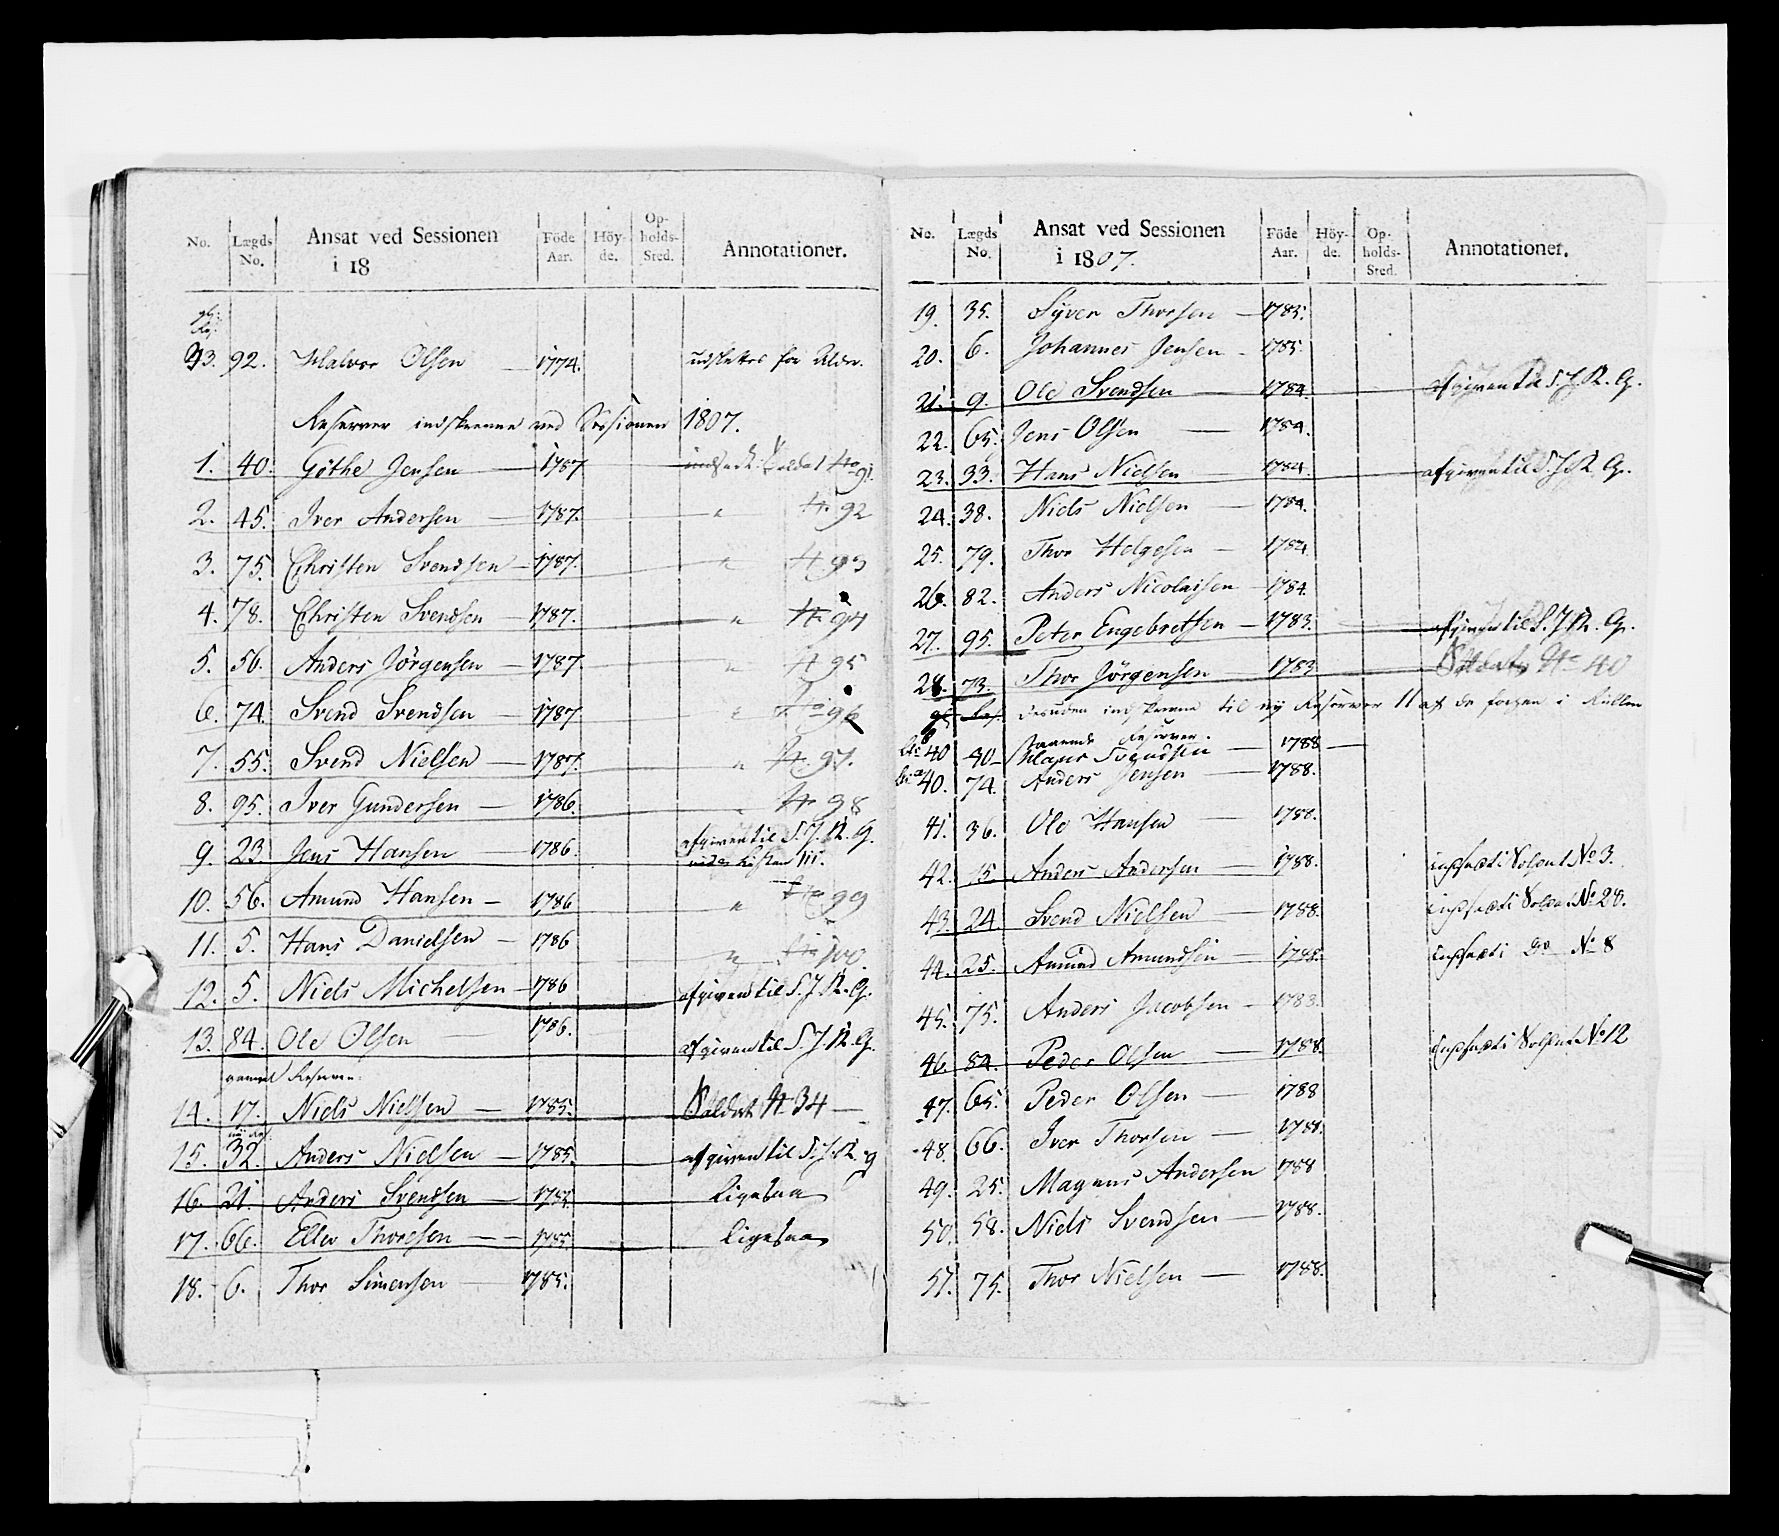 No. Lægds No. Ansat ved Sessionen i 18 Föde Aar. Höy-de. Op-holds-Sted. Annotationer.
93. 92. Halvor Olsen — 1774. udslettes for Alder.
Reserver indskrevne ved Sessionen 1807.
1. 40. Göthe Jensen — 1787 indsadt Soldat No 91.
2. 45. Iver Andersen — 1787. " No 92
3. 75. Christen Svendsen — 1787. " No 93
4. 78. Christen Svendsen — 1787. " No 94
5. 56. Anders Jörgensen — 1787 " No 95
6. 74. Svend Svendsen — 1787 " No 96
7. 55. Svend Nielsen — 1787. " No 97.
8. 95. Iver Gundersen — 1786. " No 98
9. 23 Jens Hansen — 1786. afgiven til S. J. R. G.
10. 56. Amund Hansen — 1786 " No 99
11. 5. Hans Danielsen — 1786 " No 100
12. 5. Niels Michelsen — 1786 afgiven til S. J. R. G.
13. 84. Ole Olsen — 1786. afgiven til S. J. R. G.
gamle Reserver.
14. 17. Niels Nielsen — 1785. Soldat No 34 —
15. 32. Anders Nielsen — 1785. afgiven til S. J. R. G
16. 21. Anders Svendsen — 1785. Ligesaa
17. 66. Ellev Thoresen — 1785. Ligesaa
18. 6. Thor Simensen — 1785.
No. Lægds No. Ansat ved Sessionen i 1807. Föde Aar. Höy-de. Op-holds-Sted. Annotationer.
19. 35. Syver Thorsen — 1785.
20. 6. Johannes Jensen — 1785.
21. 9. Ole Svendsen — 1784 afgiven til S. J. R. G.
22. 65. Jens Olsen — 1784.
23. 33. Hans Nielsen — 1784 afgiven til S. J. R. G.
24. 38. Niels Nielsen — 1784.
25. 79. Thor Helgesen — 1784
26. 82. Anders Nicolaisen — 1784.
27. 95. Peter Engebretsen — 1783. afgiven til S. J. R. G.
28. 73. Thor Jörgensen — 1783 Soldat No 40
desuden indskrevne til ny Reserver 11 af de forhen i Rullen
staaende Reserver.
40 40 Svendsen — 1788 —
40. 74. Anders Jensen — 1788.
41. 36. Ole Hansen — 1788.
42. 15. Anders Andersen — 1788. indsadt Soldat No 3.
43. 24. Svend Nielsen — 1788. indsadt Soldat No 28.
44. 25. Amund Amundsen — 1788. indsadt do No 8
45. 75. Anders Jacobsen — 1783.
46. 84. Peder Olsen — 1788. indsadt Soldat No 12
47. 65. Peder Olsen — 1788
48. 66. Iver Thorsen — 1788.
49. 25. Magnus Andersen 1788
50. 58. Niels Svendsen — 1788.
51. 75. Thor Nielsen — 1788.